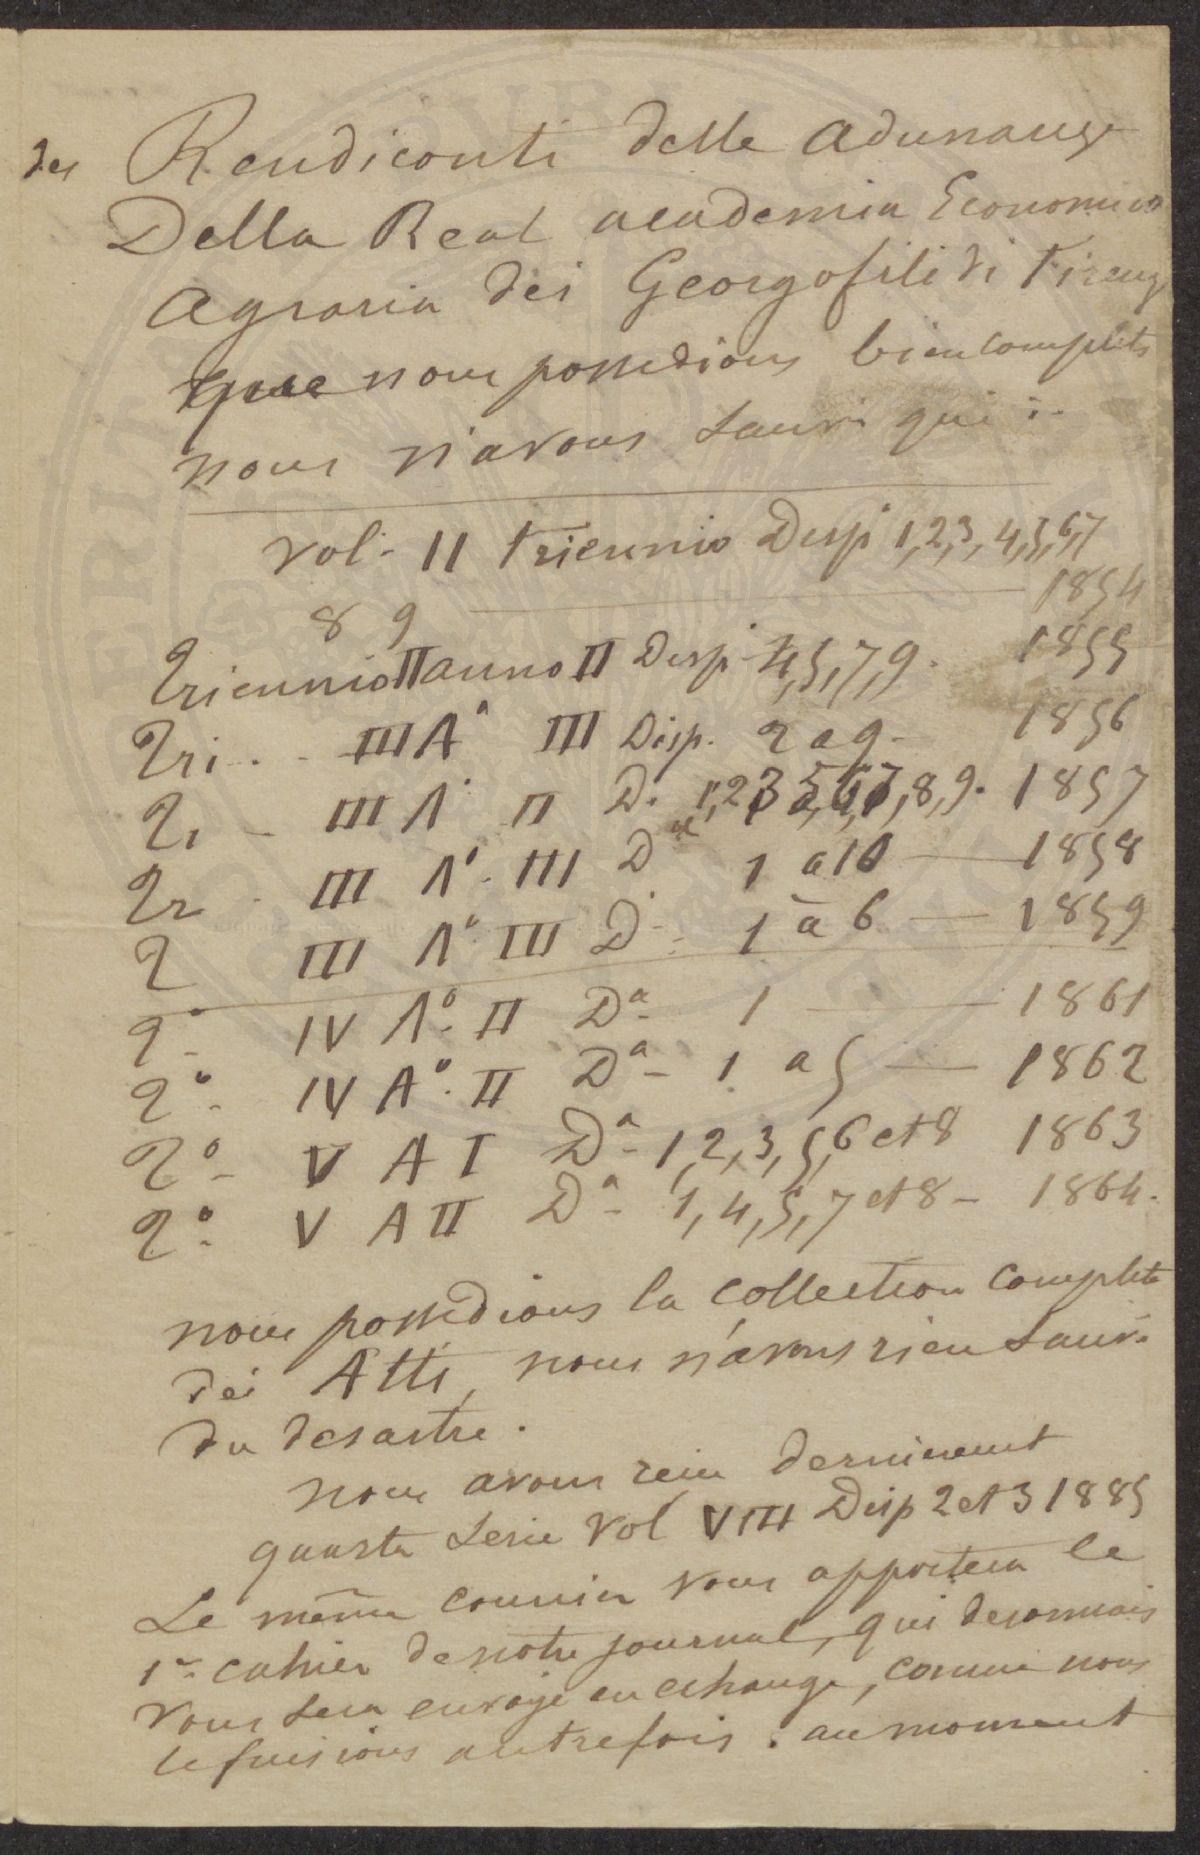 des Rendiconti delle Adunanze
Della Real academia Economico
Agraria dei Georgofili di Firenze
que nous possedions bien complets
nous n'avons sauvé que :
vol. II Triennio Disp 1,2,3,4,5,6,7
8 9 1854
Triennio II anno II Disp 4,5,7,9. 1855
Tri. III A° III Disp. 2 a 9 - 1856
Tr - III A° II D. 1,2,3,5,6,7,8,9. 1857
Tr III A° III Da 1 a 10 — 1858
T III A° III D. 1 a 6 — 1859
T° IV A° II Da 1 — 1861
T° IV A° II Da - 1 a 5 — 1862
T° - V A I Da - 1,2,3,5,6 et 8 1863
T° V A II Da - 1,4,5,7 et 8 - 1864.
nous possedions la collection complete
dei Atti, nous n'avons rien sauvé
du desastre.
nous avons reçu dernierement
quarta Serie Vol VIII Disp 2 et 3 1885
Le même courrier vous apportera le
1er cahier de notre journal, qui desormais
vous sera envoyé en echange, comme nous
le faisions autrefois. au moment